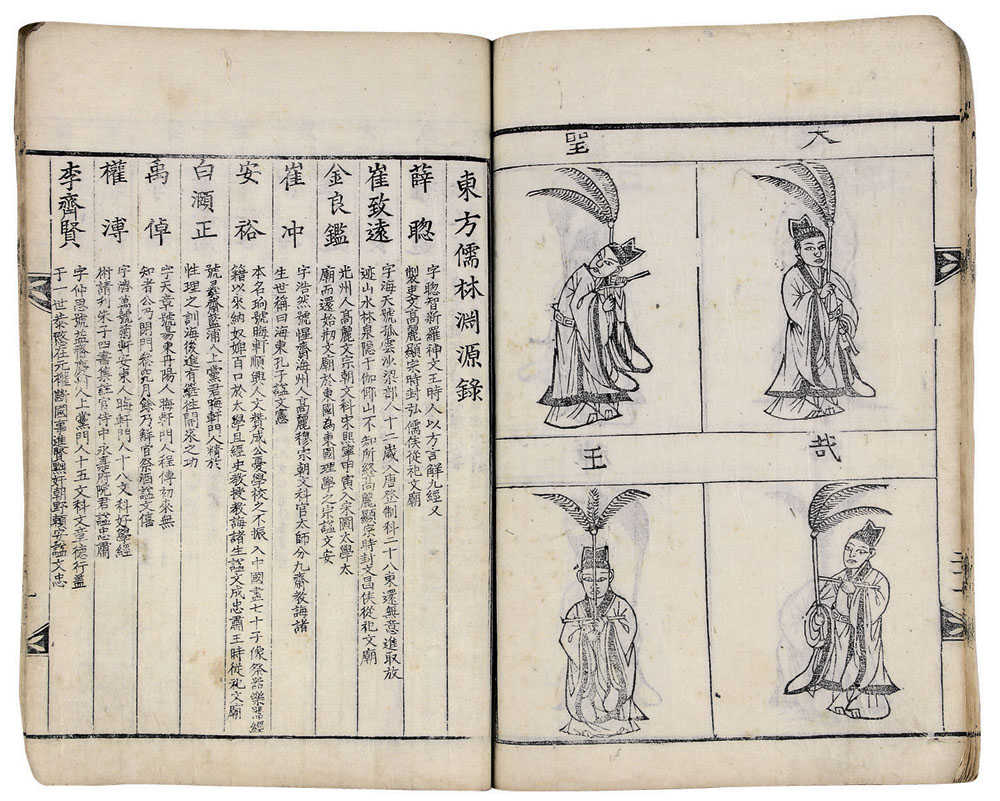 大
哉
聖
王
東方儒林淵源錄
薛聰
字聰智新羅神文王時人以方言解九經又
製吏文高麗顯宗時封弘儒侯從祀文廟
崔致遠
字海天號孤雲沙梁部人十二歲入唐登制科二十八東還無意進取放
迹山水林泉隱于伽倻山不知所終高麗顯宗時封文昌侯從祀文廟
金良鑑
光州人高麗文宗朝文科宋熙寧甲寅入宋圖太學太
廟而還始刱文廟於東國爲東國理學之宗謚文安
崔冲
字浩然號惺齋海州人高麗穆宗朝文科官太師分九齋敎誨諸
生世稱曰海東孔子謚文憲
安裕
本名珦號晦軒順興人文贊成公憂學校之不振入中國畫七十子像祭器樂器經
籍以來納奴婢百口於太學且經史敎授敎誨諸生謚文成忠肅王時從祀文廟
白頤正
號彛齋藍浦人上黨君晦軒門人精於
性理之訓海後進有繼往開來之功
禹倬
字天章號易東丹陽人晦軒門人程傳初來無
知者公乃閉門叅究月餘乃解官祭酒謚文僖
權溥
字齊萬號菊軒安東人晦軒門人十八文科好學經
術請刊朱子四書集註官侍中永嘉府院君謚忠肅
李齊賢
字仲思號益齋慶州人上黨門人十五文科文章德行盖
于一世恭愍在元權斷國事進賢黜奸朝野賴安謚文忠